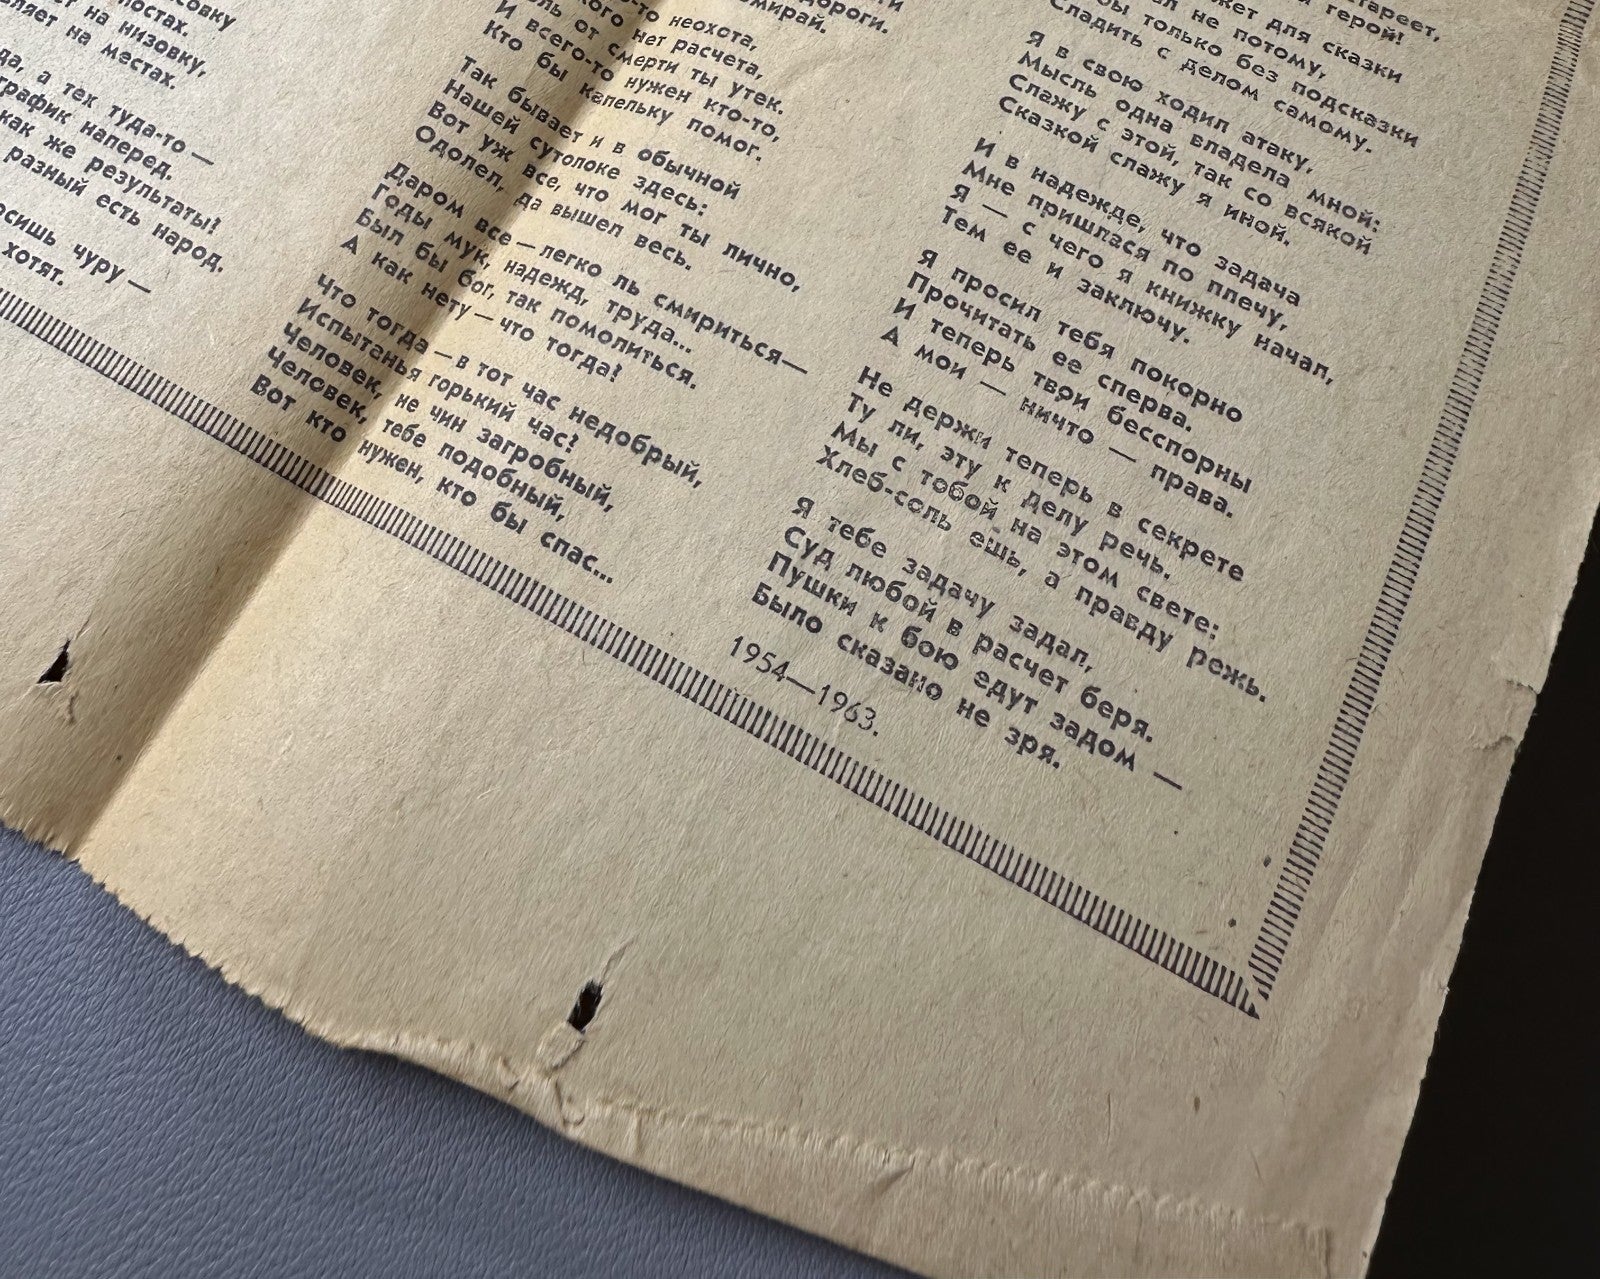 совку
постах.
ет на низовку,
ляет на местах.
да, а тех туда-то —
график наперед.
как же результаты?
разный есть народ.
осишь чуру —
хотят.
неохота,
нет расчета,
от смерти ты утек.
И всего-то нужен кто-то,
Кто бы капельку помог.
Так бывает и в обычной
Нашей сутолоке здесь:
Вот уж все, что мог ты лично,
Одолел, да вышел весь.
Даром все — легко ль смириться —
Годы мук, надежд, труда...
Был бы бог, так помолиться.
А как нету — что тогда?
Что тогда — в тот час недобрый,
Испытанья горький час?
Человек, не чин загробный,
Человек, тебе подобный,
Вот кто нужен, кто бы спас...
дороги.
умирай.
стареет,
герой!
жет для сказки
не потому,
бы только без подсказки
Сладить с делом самому.
Я в свою ходил атаку,
Мысль одна владела мной:
Слажу с этой, так со всякой
Сказкой слажу я иной.
И в надежде, что задача
Мне пришлася по плечу,
Я — с чего я книжку начал,
Тем ее и заключу.
Я просил тебя покорно
Прочитать ее сперва.
И теперь твои бесспорны
А мои — ничто — права.
Не держи теперь в секрете
Ту ли, эту к делу речь.
Мы с тобой на этом свете:
Хлеб-соль ешь, а правду режь.
Я тебе задачу задал,
Суд любой в расчет беря.
Пушки к бою едут задом —
Было сказано не зря.
1954—1963.